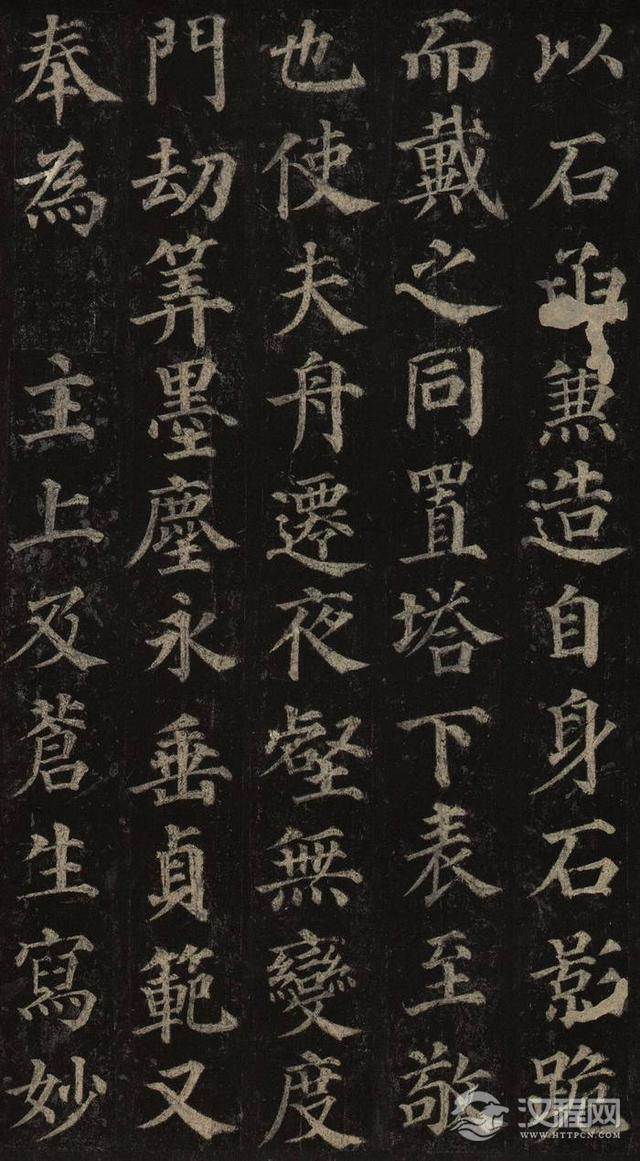 以石函兼造自身石影跪
而戴之同置塔下表至敬
也使夫舟遷夜壑無變度
門劫筭墨塵永垂貞範又
奉為 主上及蒼生寫妙
汉程网
WWW.HTTPCN.COM